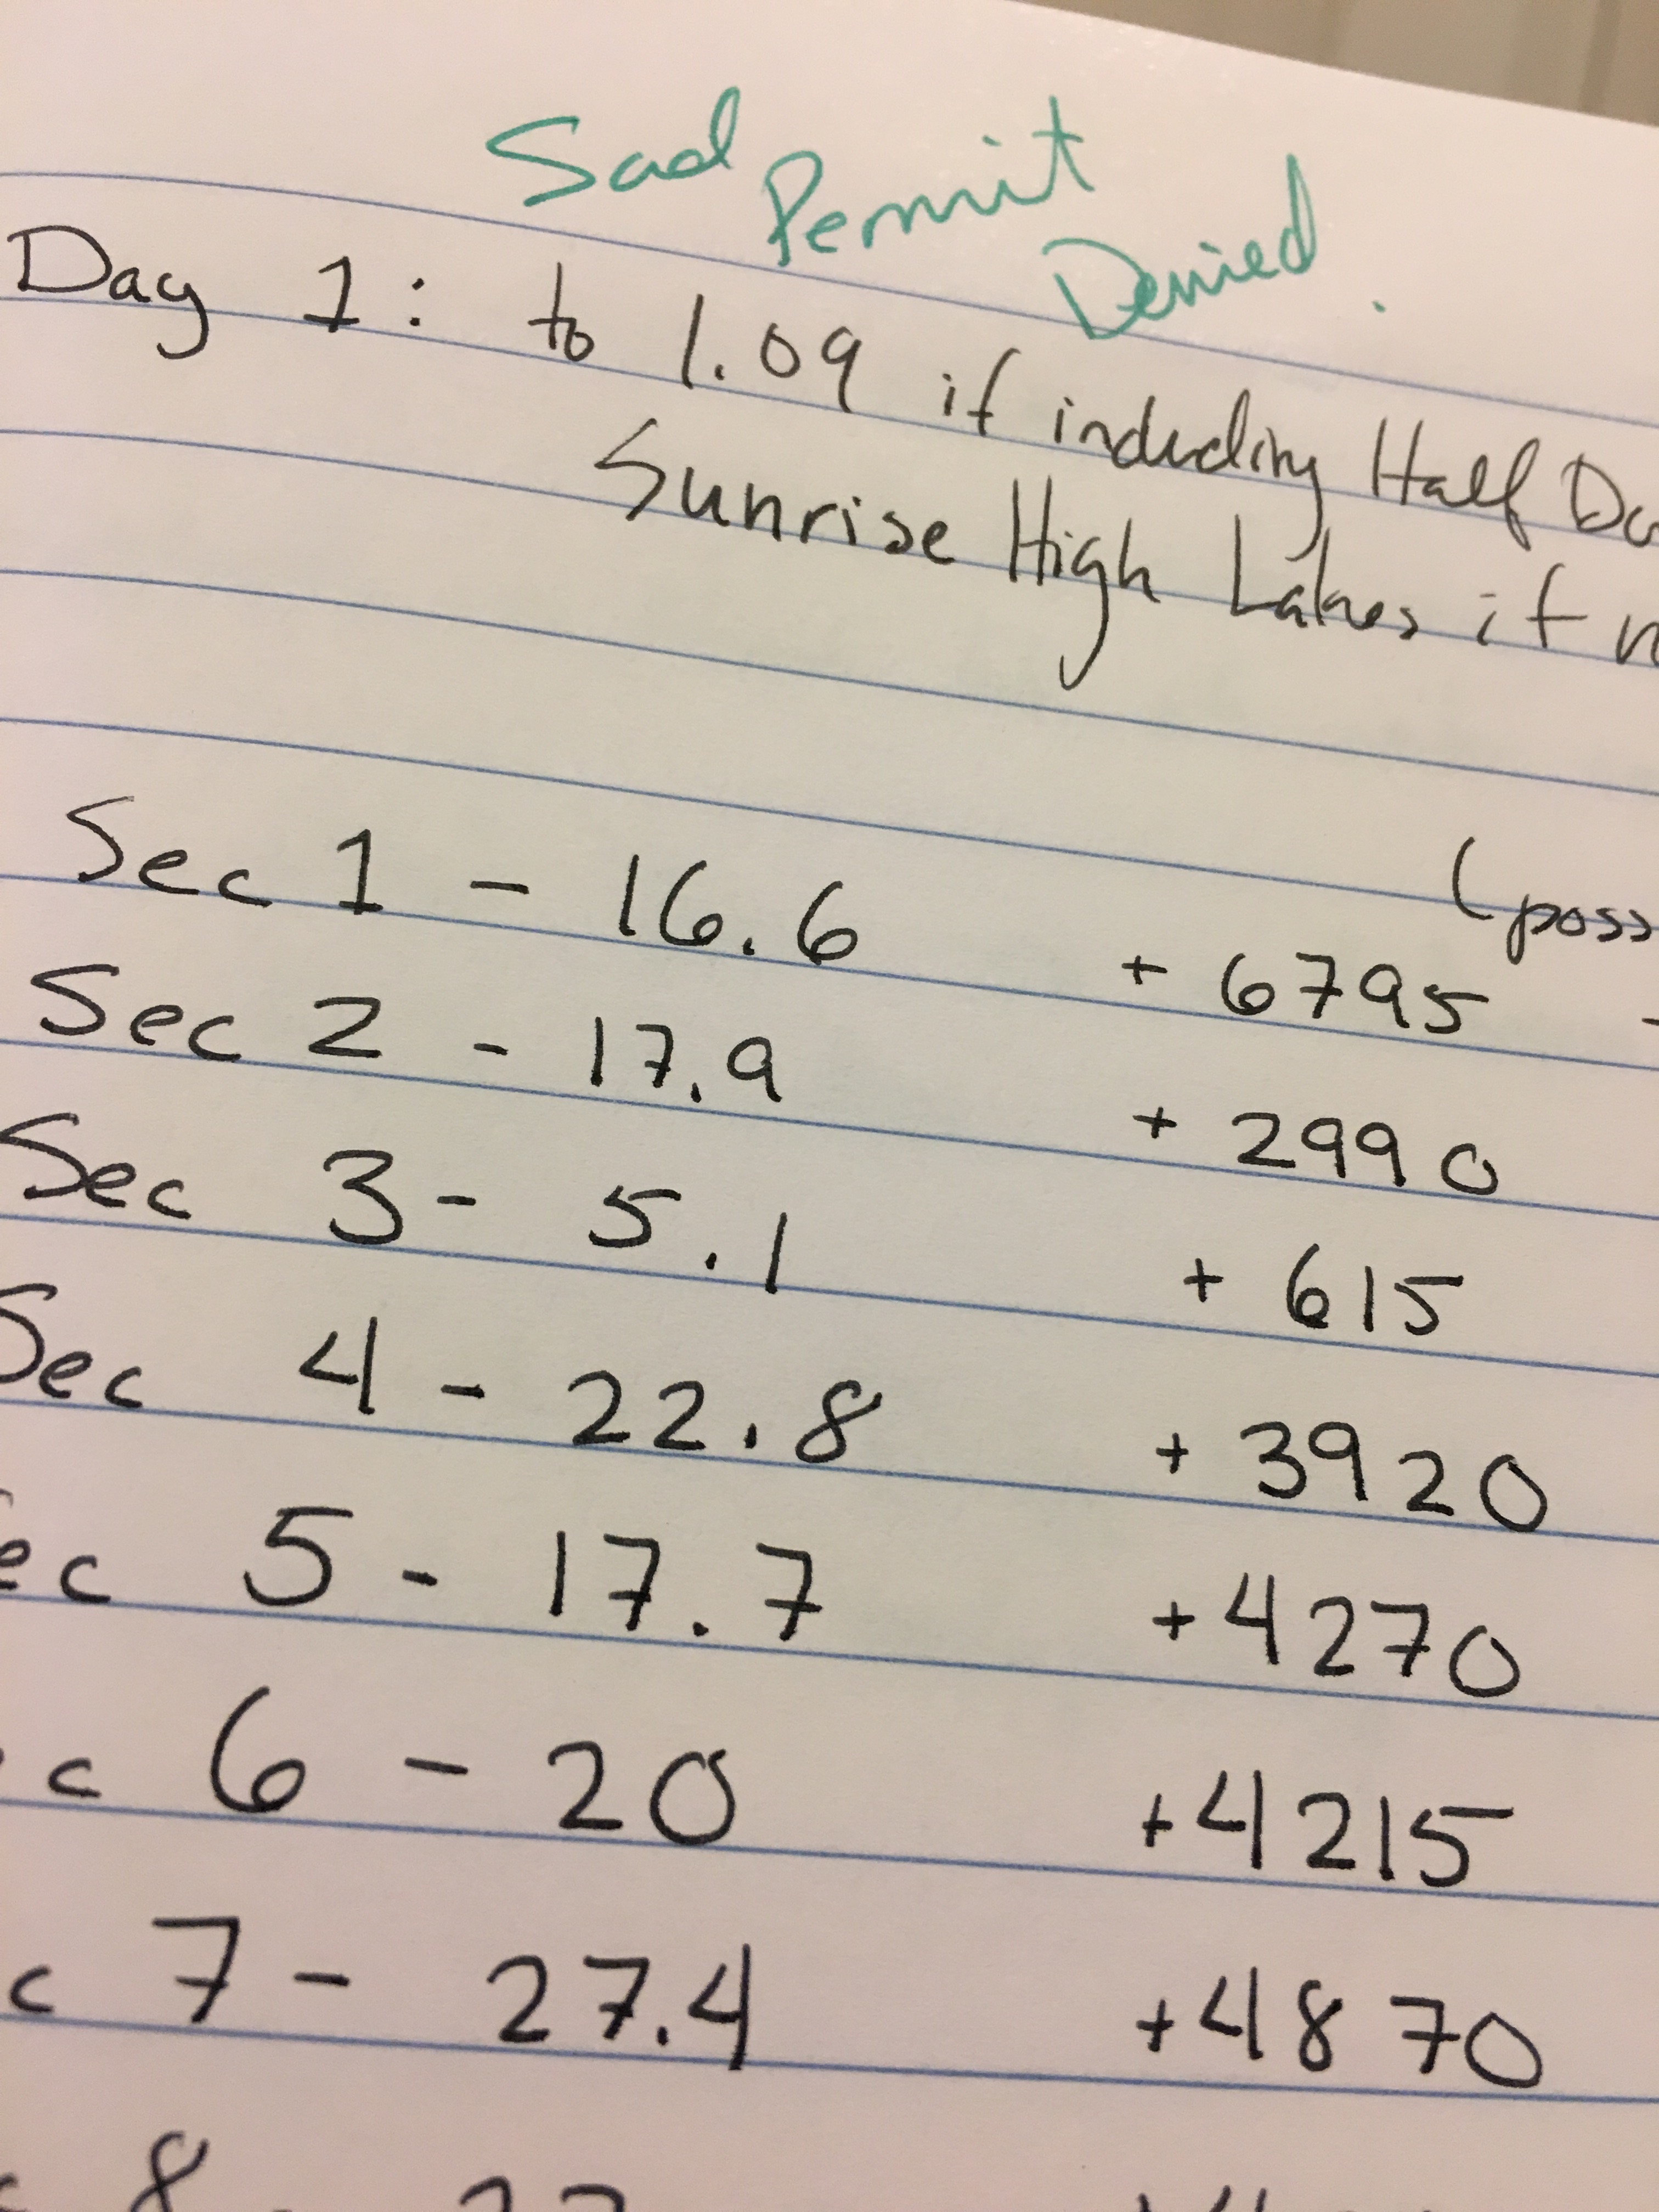 Sad Permit Denied.
Day 1: to 1.09 if including Half Do
Sunrise High Lakes if n
(poss
Sec 1 - 16.6 + 6795 -
Sec 2 - 17.9 + 2990
Sec 3 - 5.1 + 615
Sec 4 - 22.8 + 3920
ec 5 - 17.7 +4270
c 6 - 20 +4215
c 7 - 27.4 +4870
8